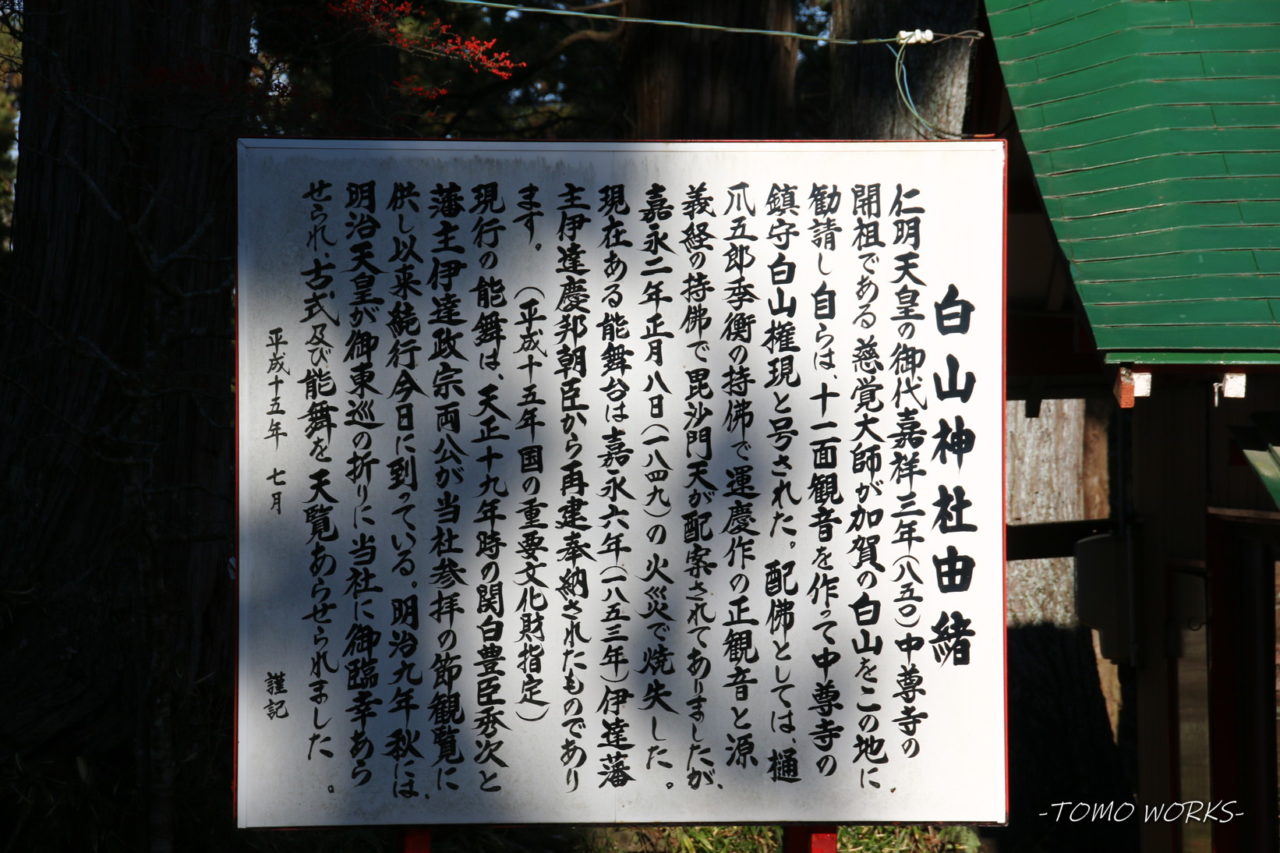 白山神社由緒
仁明天皇の御代嘉祥三年(八五〇)中尊寺の
開祖である慈覚大師が加賀の白山をこの地に、
勧請し自らは、十一面観音を作って中尊寺の
鎮守白山権現と号された。配佛としては、樋
爪五郎季衡の持佛で運慶作の正観音と源
義経の持佛で毘沙門天が配案されてありましたが、
嘉永二年正月八日(一八四九)の火災で焼失した。
現在ある能舞台は嘉永六年(一八五三年)伊達藩
主伊達慶邦朝臣から再建奉納されたものであり
ます。(平成十五年国の重要文化財指定)
現行の能舞は、天正十九年時の関白豊臣秀次と
藩主伊達政宗両公が当社参拝の節観覧に
供し以来続行今日に到っている。明治九年秋には、
明治天皇が御東巡の折りに当社に御臨幸あら
せられ、古式及び能舞を天覧あらせられました。
平成十五年 七月 謹記
-TOMO WORKS-